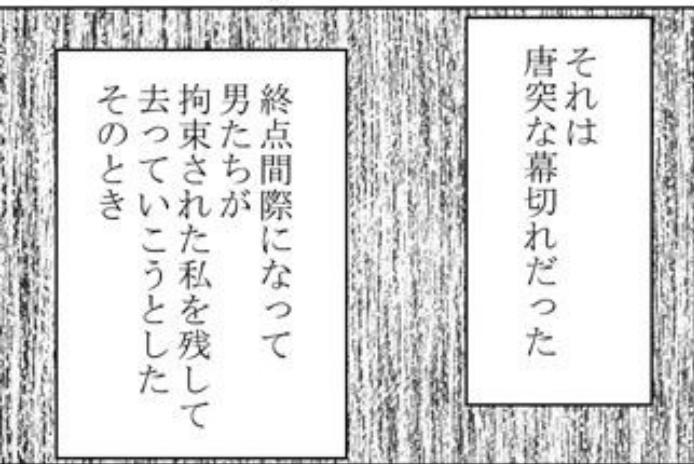 それは
唐突な幕切れだった
終点間際になって
男たちが
拘束された私を残して
去っていこうとした
そのとき